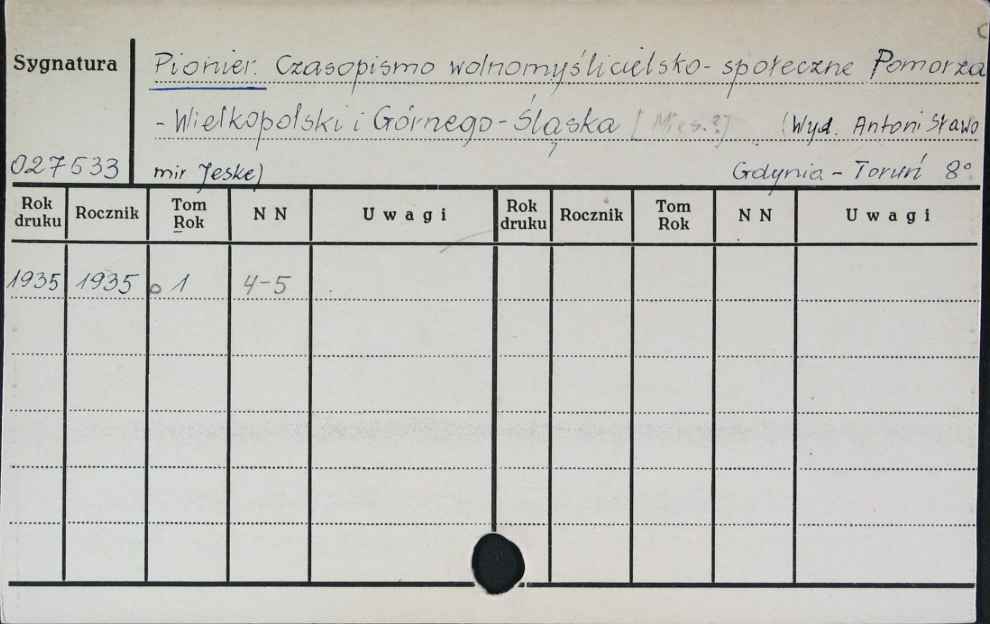 Sygnatura
Pionier. Czasopismo wolnomyślicielsko-społeczne Pomorza
-Wielkopolski i Górnego-Śląska [Mies.?] (Wyd. Antoni Sławo
027533 mir Jeske) Gdynia-Toruń 8°
Rok druku Rocznik Tom Rok NN Uwagi Rok druku Rocznik Tom Rok NN Uwagi
1935 1935 o 1 4-5